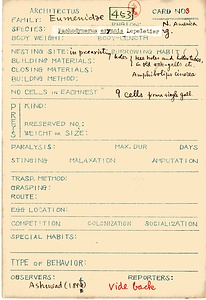 ARCHITECTUS CARD NO.
FAMILY: Eumenidae 453
SPECIES: N. America
Pachodynerus erynnis Lepeletier
BODY WEIGHT: BODY LENGTH:
NESTING SITE: in preexisting holes BURROWING HABIT
BUILDING MATERIALS:
CLOSING MATERIALS: in old oak-galls of
BUILDING METHOD: Amphibolips cinerea
NO. CELLS IN EACH NEST: 9 cells from single gall.
PRES KIND:
PRESERVED NO.:
WEIGHT or SIZE:
PARALYSIS: MAX. DUR DAYS
STINGING MALAXATION AMPUTATION
TRASP. METHOD:
GRASPING:
ROUTE:
EGG LOCATION:
COMPETITION COLONIZATION SOCIALIZATION
SPECIAL HABITS:
TYPE of BEHAVIOR:
OBSERVERS: REPORTERS:
Ashmead vide back